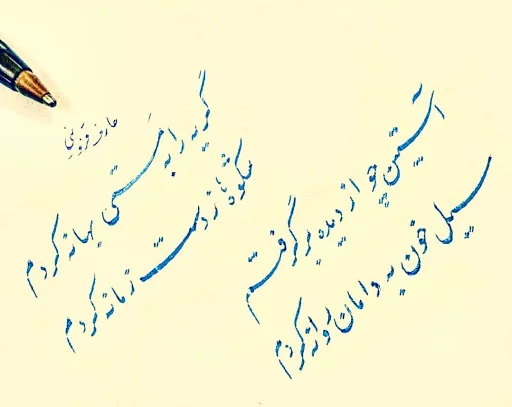 گریه را به مستی بهانه کردم
شکوه ها ز دست زمانه کردم
آستین چو از دیده برگرفتم
سیل خون به دامان روانه کردم
عارف قزوینی